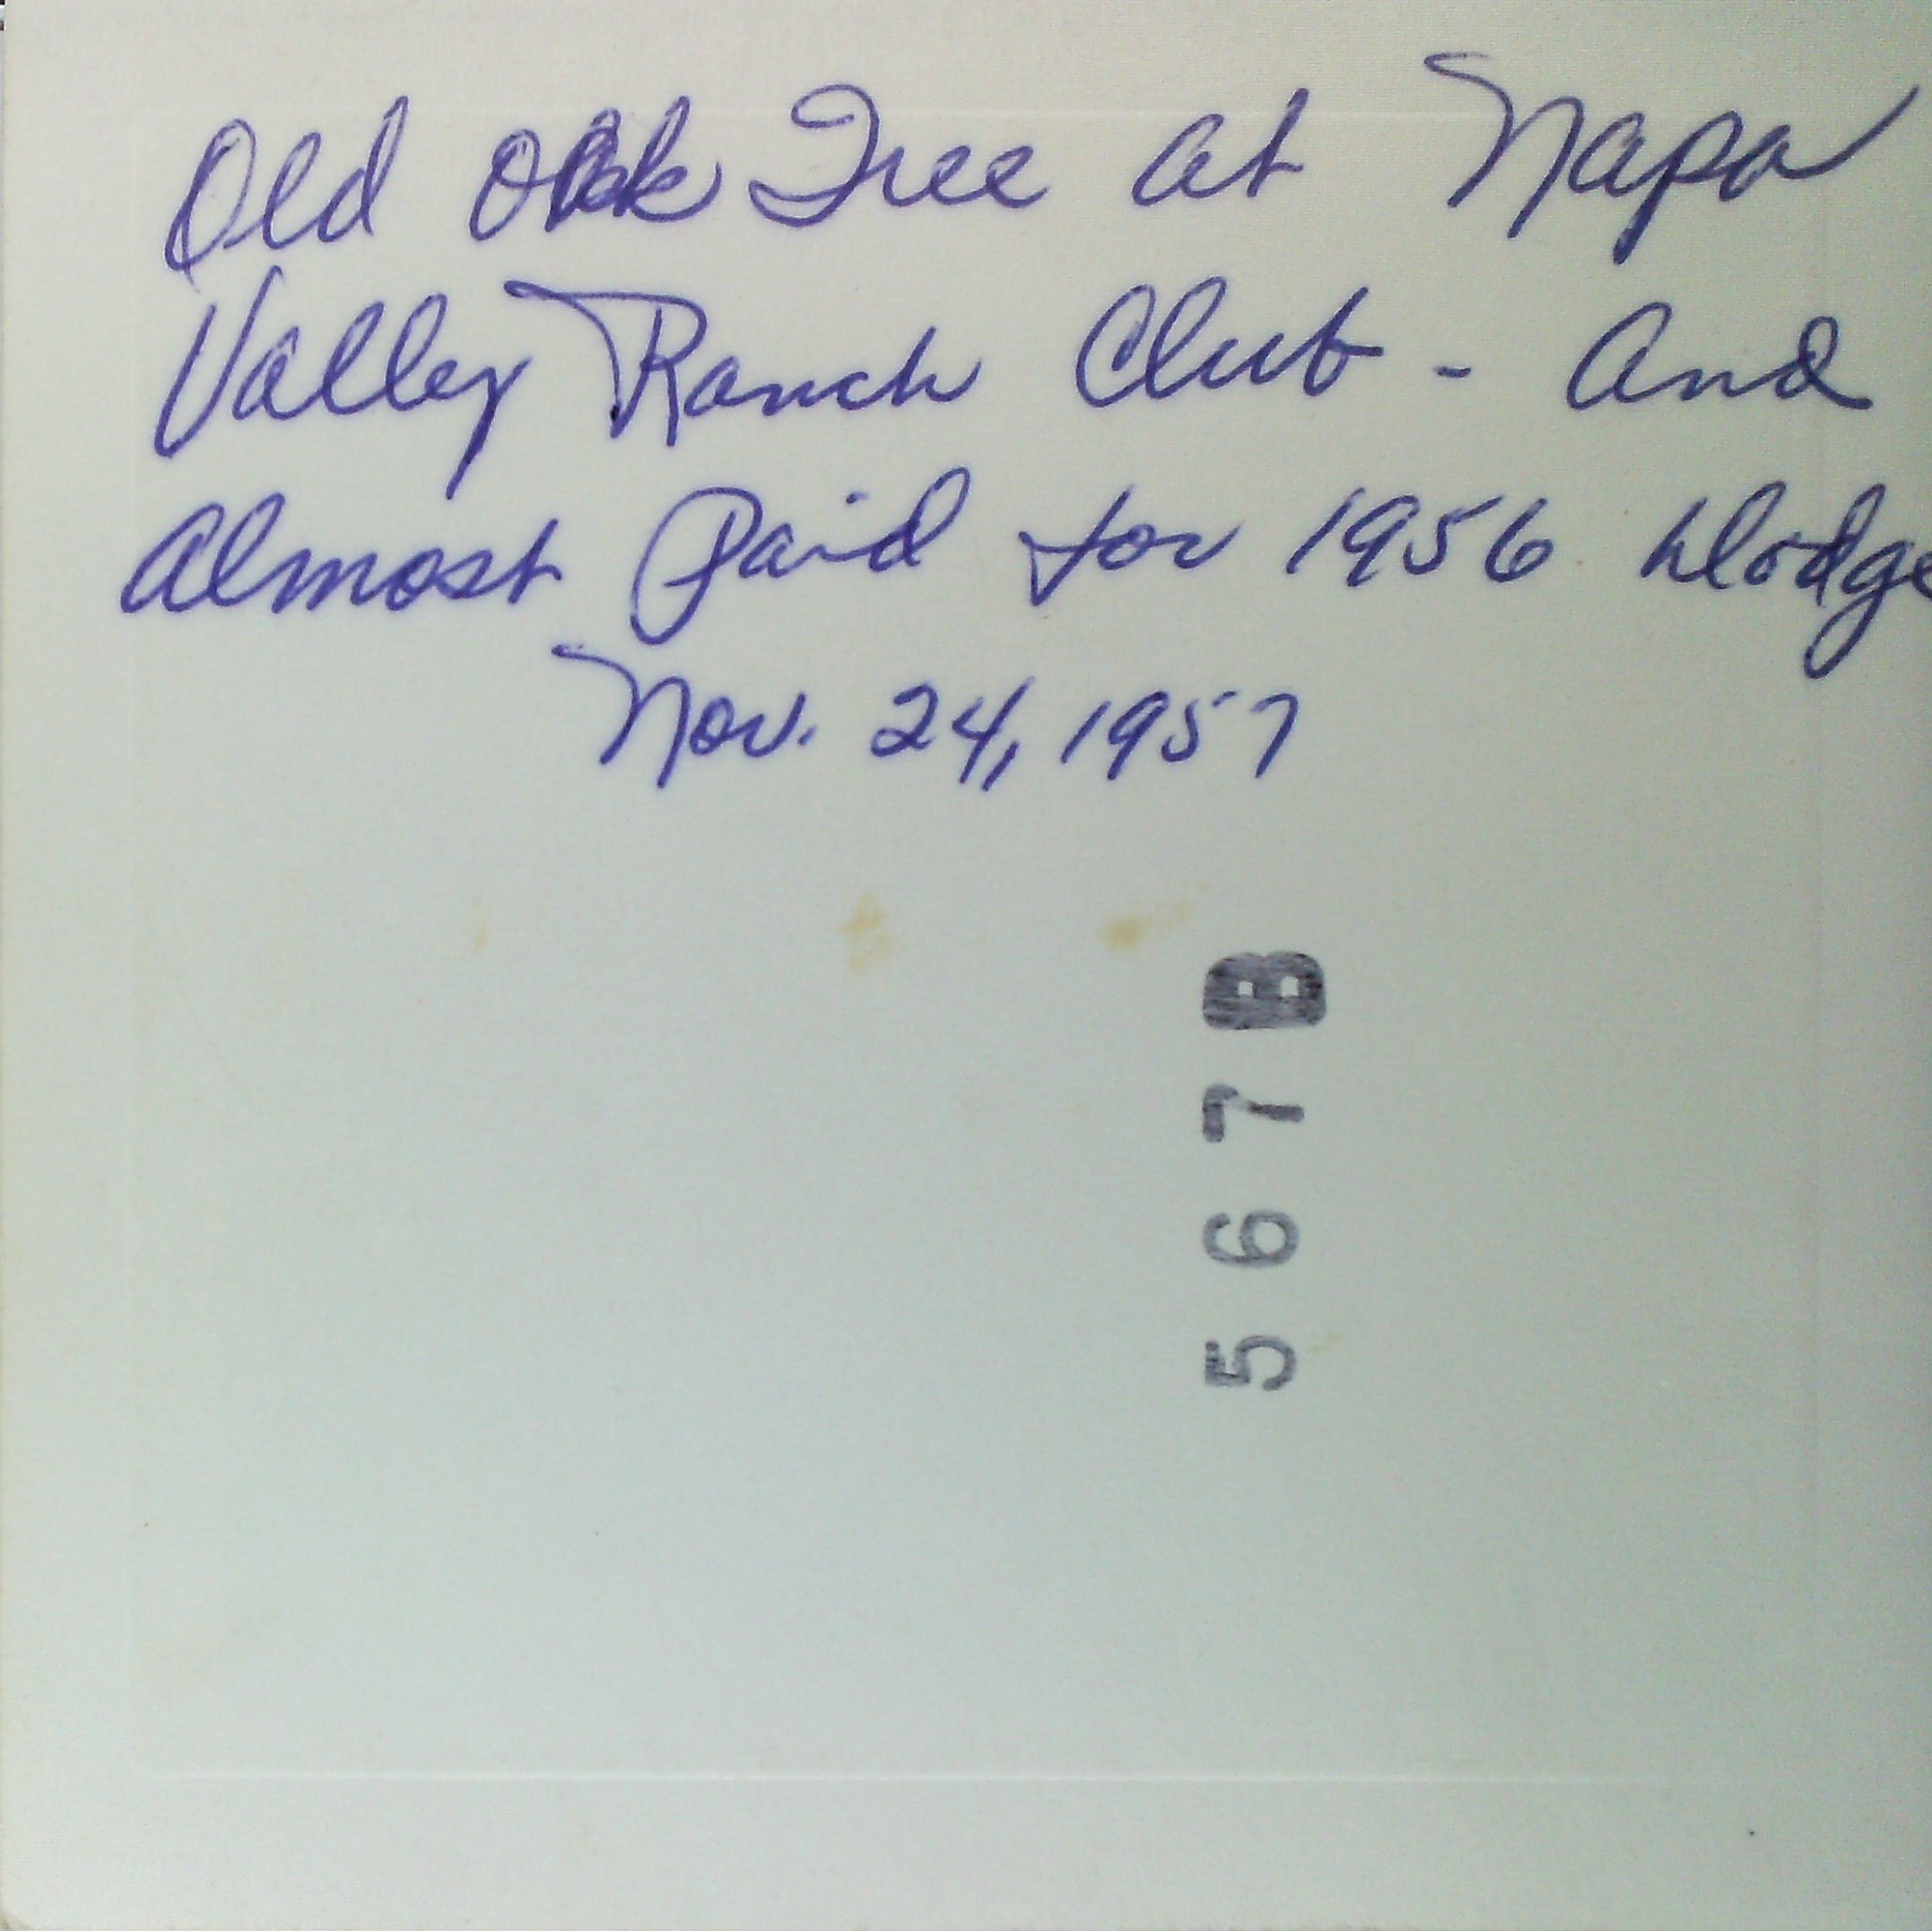 Old Oak Tree at Napa
Valley Ranch Club - and
almost Paid for 1956 Dodge
Nov. 24, 1957
567B